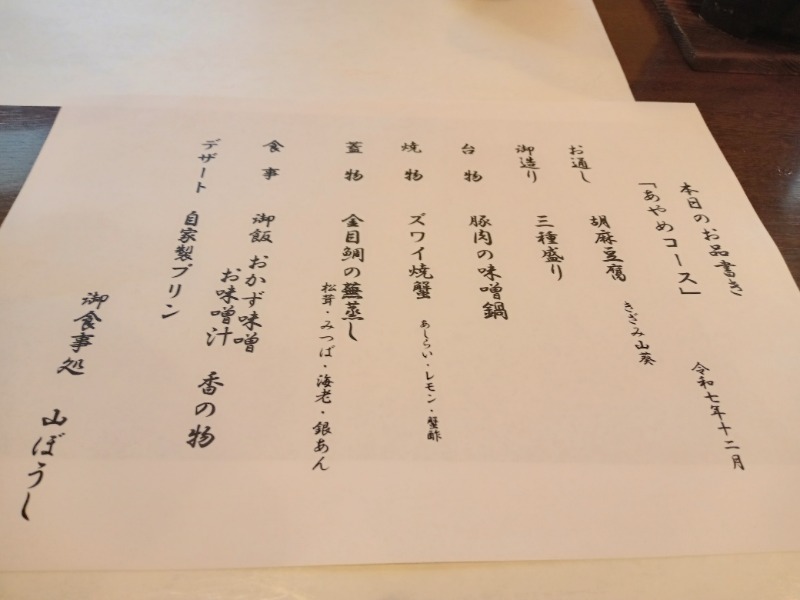 本日のお品書き
令和七年十二月
「あやめコース」
お通し 胡麻豆腐 きざみ山葵
御造り 三種盛り
台物 豚肉の味噌鍋
焼物 ズワイ焼蟹 あしらい・レモン・蟹酢
蓋物 金目鯛の蕪蒸し
松茸・みつば・海老・銀あん
食事 御飯 おかず味噌
お味噌汁 香の物
デザート 自家製プリン
御食事処 山ぼうし